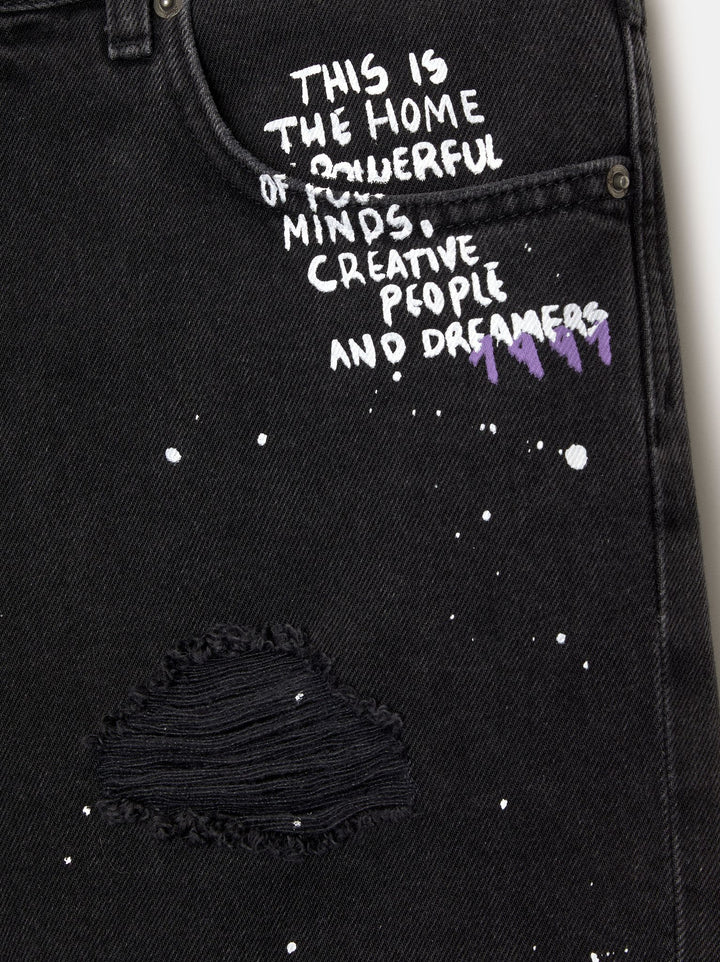 THIS IS
THE HOME
OF POWERFUL
MINDS,
CREATIVE
PEOPLE
AND DREAMERS
1991